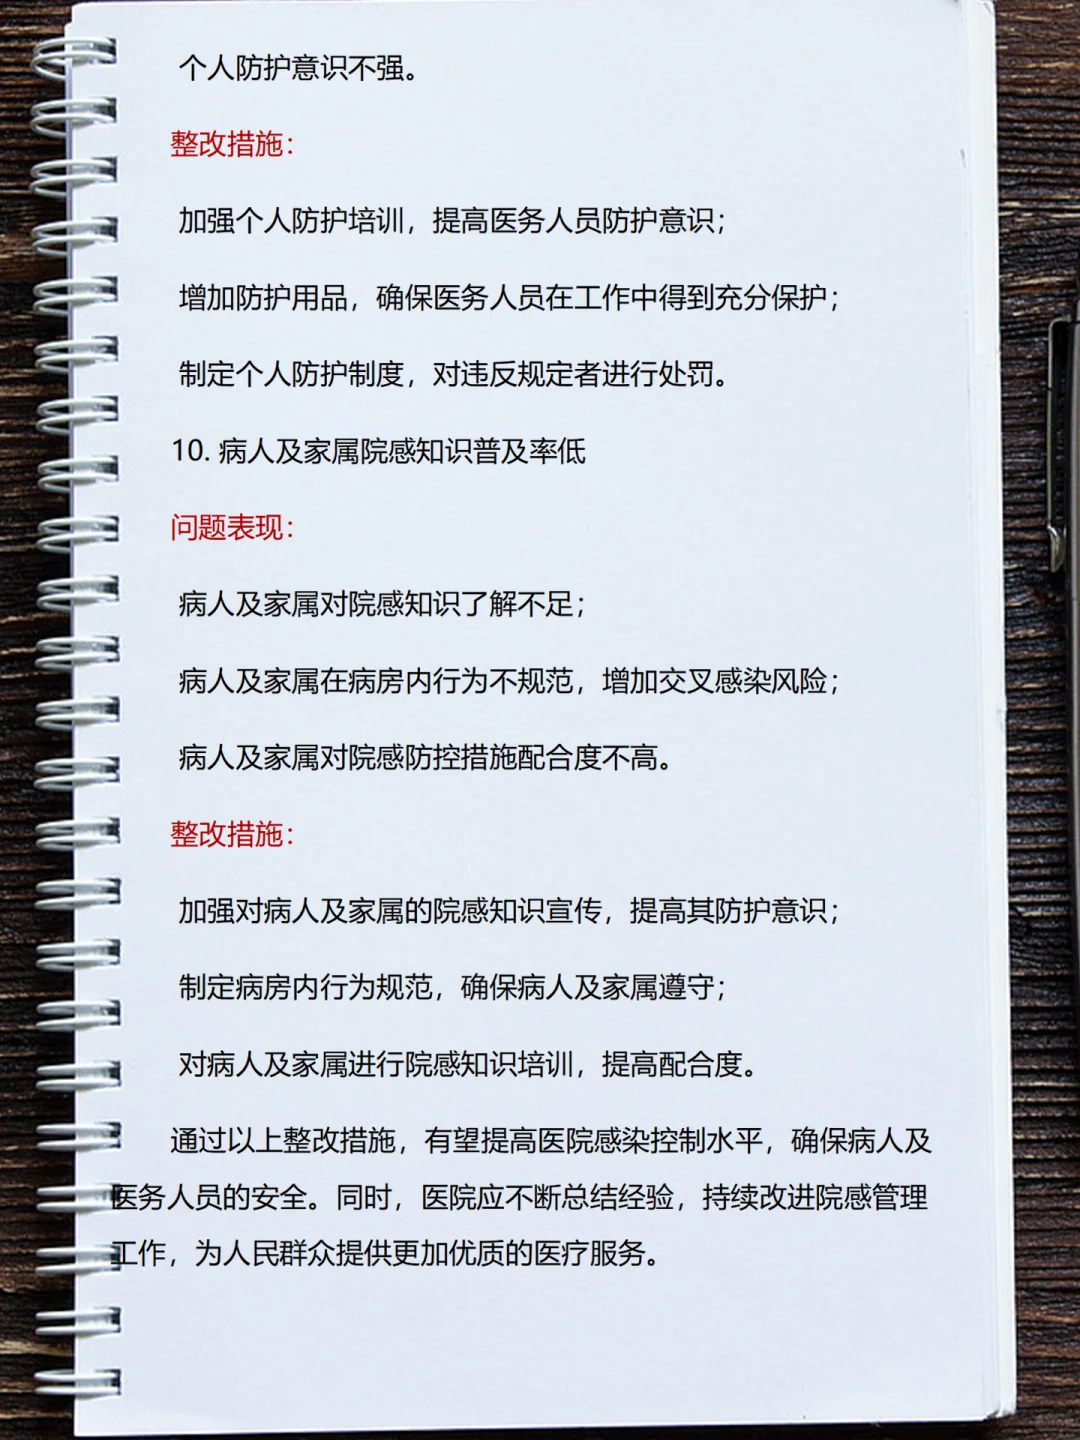 个人防护意识不强。
整改措施：
加强个人防护培训，提高医务人员防护意识；
增加防护用品，确保医务人员在工作中得到充分保护；
制定个人防护制度，对违反规定者进行处罚。
10. 病人及家属院感知识普及率低
问题表现：
病人及家属对院感知识了解不足；
病人及家属在病房内行为不规范，增加交叉感染风险；
病人及家属对院感防控措施配合度不高。
整改措施：
加强对病人及家属的院感知识宣传，提高其防护意识；
制定病房内行为规范，确保病人及家属遵守；
对病人及家属进行院感知识培训，提高配合度。
通过以上整改措施，有望提高医院感染控制水平，确保病人及
医务人员的安全。同时，医院应不断总结经验，持续改进院感管理
工作，为人民群众提供更加优质的医疗服务。